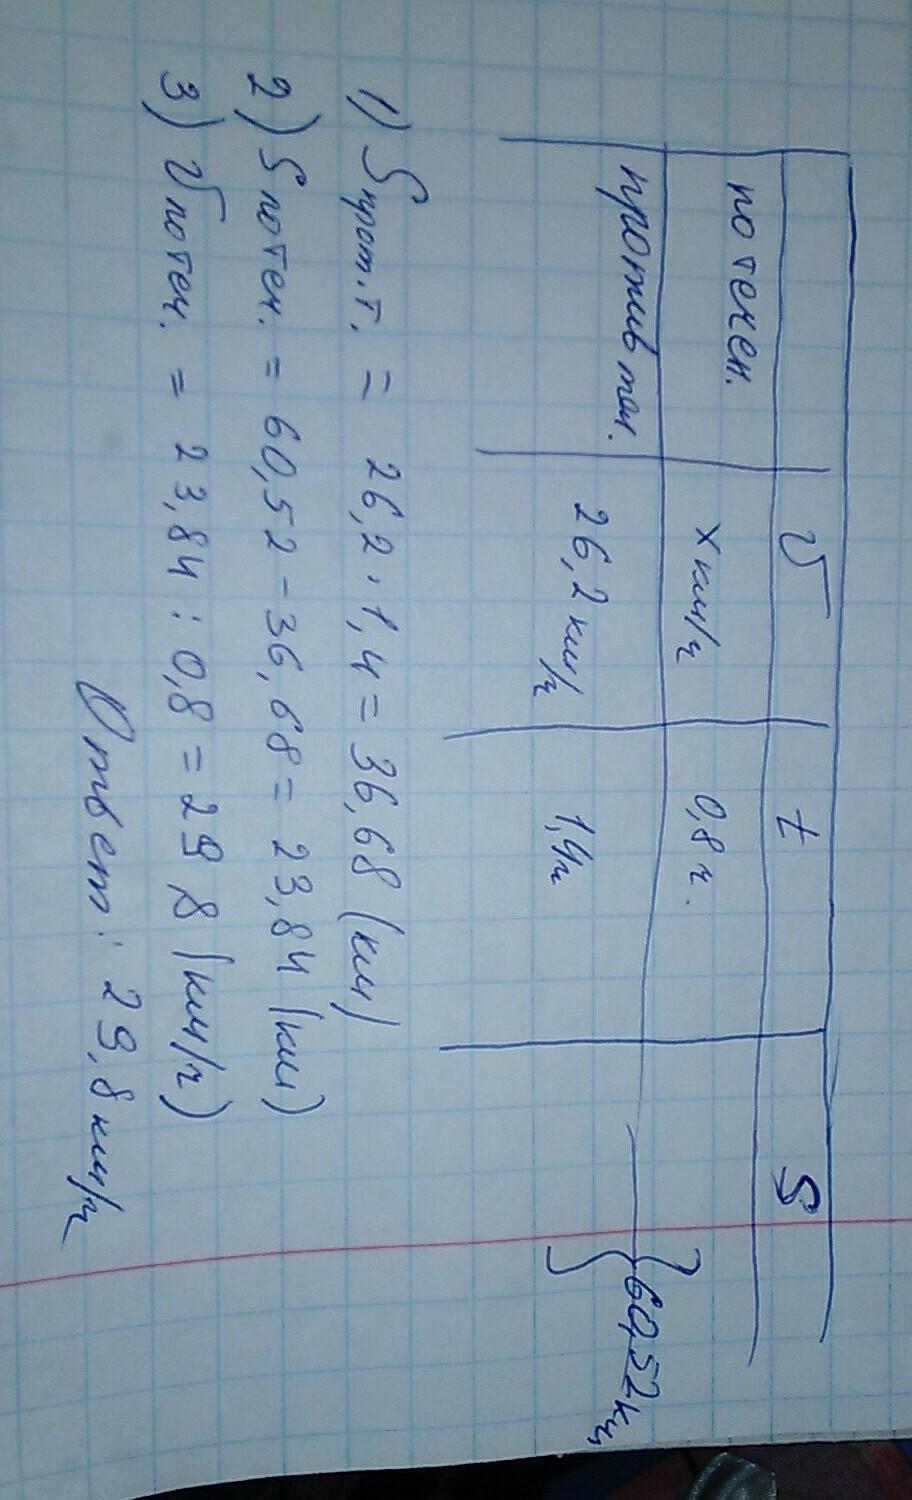 v t S
по течен. x км/ч 0,8 ч. } 60,52 км
против теч. 26,2 км/ч 1,4ч
1) Sпрот.т. = 26,2 · 1,4 = 36,68 (км)
2) Sпо теч. = 60,52 - 36,68 = 23,84 (км)
3) vпо теч. = 23,84 : 0,8 = 29,8 (км/ч)
Ответ: 29,8 км/ч